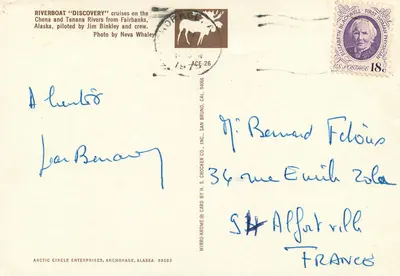 RIVERBOAT "DISCOVERY" cruises on the
Chena and Tanana Rivers from Fairbanks,
Alaska, piloted by Jim Binkley and crew.
Photo by Neva Whaley
ELIZABETH BLACKWELL FIRST WOMAN PHYSICIAN
U.S. POSTAGE 18c
A bientôt
M. Bernard
34 rue Emile Zola
94 Alfortville
FRANCE
CARD BY H. S. CROCKER CO., INC. SAN BRUNO, CAL. 94066
ARCTIC CIRCLE ENTERPRISES, ANCHORAGE, ALASKA 99503